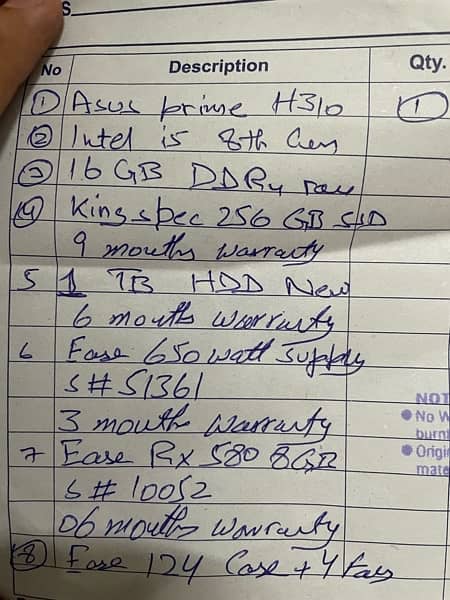 S
No Description Qty.
1 Asus prime H310 1
2 Intel i5 8th Gen
3 16 GB DDR4 ram
4 Kingspec 256 GB SSD
9 months warranty
5 1 TB HDD New
6 months warranty
6 Ease 650 watt supply
S# S1361
3 months warranty
NOT
No W
burn
7 Ease Rx 580 8GB
Origi
mate
S# 10052
06 months warranty
8 Ease 124 Case + 4 Fans